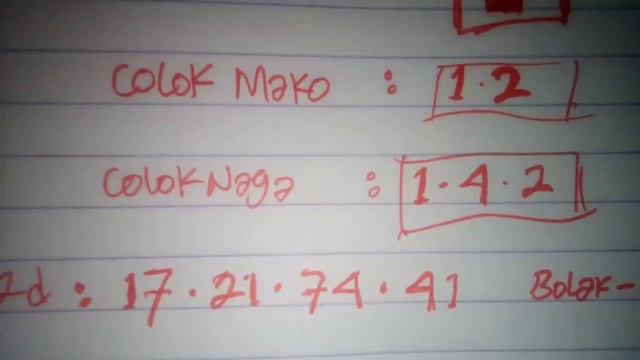 Colok Mako : 1.2
Colok Naga : 1.4.2
2d : 17.21.74.41 Bolak-